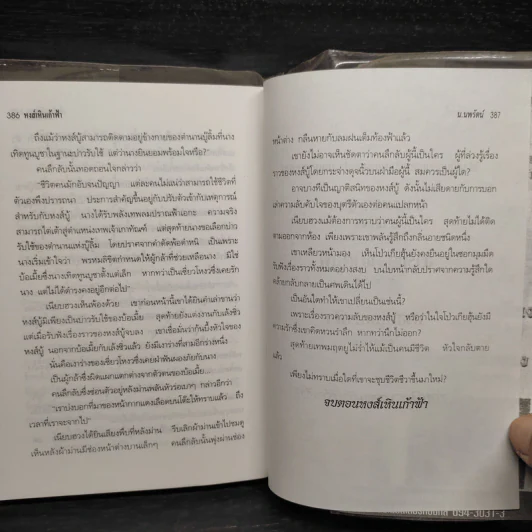 386 หงส์เหินเก้าฟ้า
ถึงแม้ว่าหงส์บู๊สามารถติดตามอยู่ข้างกายของตำนานบู๊ลิ้มที่นาง
เทิดทูนบูชาในฐานะบ่าวรับใช้ แต่ว่านางยินยอมพร้อมใจหรือ?"
คนลึกลับนั้นทอดถอนใจกล่าวว่า
"ชีวิตคนมักอับจนปัญญา แต่ละคนไม่แน่ว่าสามารถใช้ชีวิตที่
ตัวเองพึงปรารถนา ประการสำคัญขึ้นอยู่กับปรับตัวเข้ากับเหตุการณ์
สำหรับกับหงส์บู๊ นางได้รับพลังเทพลมปราณฟ้าแกะ ความจริง
สามารถไต่เต้าสู่ตำแหน่งเทพเจ้าเกาทัณฑ์ แต่สุดท้ายนางขอเลือกบ่าว
รับใช้ของตำนานแห่งบู๊ลิ้ม โดยปราศจากคำตัดพ้อตำหนิ เป็นเพราะ
นางเริ่มเข้าใจว่า พรหมลิขิตกำหนดให้ผู้ที่ช่วยเหลือนาง มิใช่
ป้อเมี้ยซึ่งนางเทิดทูนบูชาตั้งแต่เล็ก หากทว่าเป็นเซี่ยวโหงวซึ่งเคยรัก
นาง แต่ไม่ได้ดำรงคงอยู่อีกต่อไป"
เนียบฮวงเห็นพ้องด้วย เขาก่อนหน้านี้เคยได้ยินคำเล่าขานว่า
หงส์บู๊มีเพียงเป็นบ่าวรับใช้ของป้อเมี้ย สุดท้ายยังแต่งงานกับเล้งชิ้ว
แต่เมื่อรับฟังเรื่องราวของหงส์บู๊จบลง เขาเชื่อมั่นว่ากึ่งหัวใจของ
หงส์บู๊ นอกจากป้อเมี้ยกับเล้งชิ้วแล้ว ยังมีเงาร่างที่ลางอีกร่างหนึ่ง
นั่นคือเงาร่างของเซี่ยวโหงวซึ่งเคยฝ่าฟันผองภัยกับนาง
เป็นผู้กล้าซึ่งผิดแผกแตกต่างจากตัวตนของป้อเมี้ย...
คนลึกลับซึ่งซ่อนตัวอยู่หลังม่านพลันหัวร่อเบาๆ กล่าวอีกว่า
"เราบ่งบอกที่มาของหน้ากากแดงเลือดบนโต๊ะให้ทราบแล้ว ...ถึง
เวลาที่เราจะจากไป"
เนียบฮวงได้ยินเสียงพึ่บที่หลังม่าน รีบเลิกผ้าม่านเข้าไปชมดู
เห็นหลังผ้าม่านมีช่องหน้าต่างบานเล็กๆ คนลึกลับนั้นพุ่งผ่านช่อง
น.นพรัตน์ 387
หน้าต่าง กลืนหายกับลมฝนเต็มท้องฟ้าแล้ว
เขายังไม่อาจเห็นชัดตาว่าคนลึกลับผู้นี้เป็นใคร ผู้ที่ล่วงรู้เรื่อง
ราวของหงส์บู๊โดยกระจ่างดุจนิ้วบนฝ่ามือผู้นี้ สมควรเป็นผู้ใด?
อาจบางทีเป็นญาติสนิทของหงส์บู๊ ดังนั้นไม่เสียดายกับการบอก
เล่าความลับคับใจของบุตรีตัวเองต่อคนแปลกหน้า
เนียบฮวงแม้ต้องการทราบว่าคนผู้นี้เป็นใคร สุดท้ายไม่ได้ติด
ตามออกจากห้อง เพียงเพราะเขาพลันรู้สึกถึงกลิ่นอายชนิดหนึ่ง
เขาเหลียวหน้ามอง เห็นโปวเกียฮุ้นยังคงยืนอยู่ในซอกมุมมืด
รับฟังเรื่องราวทั้งหมดอย่างสงบ บนใบหน้ากลับปราศจากความรู้สึกใด
คล้ายกับกลายเป็นศพเดินได้ไป
เป็นอันใดทำให้เขาเปลี่ยนเป็นเช่นนี้?
เพราะเรื่องราวความลับของหงส์บู๊ หรือว่าในใจโปวเกียฮุ้นยังมี
ความรักซึ่งเขาคิดหวนรำลึก หากทว่านึกไม่ออก?
สุดท้ายเทพมฤตยูไม่ร่ำไห้แม้เป็นคนมีชีวิต หัวใจกลับตาย
แล้ว
เพียงไม่ทราบเมื่อใดที่เขาจะชุบชีวิตชีวาขึ้นมาใหม่?
จบตอนหงส์เหินเก้าฟ้า